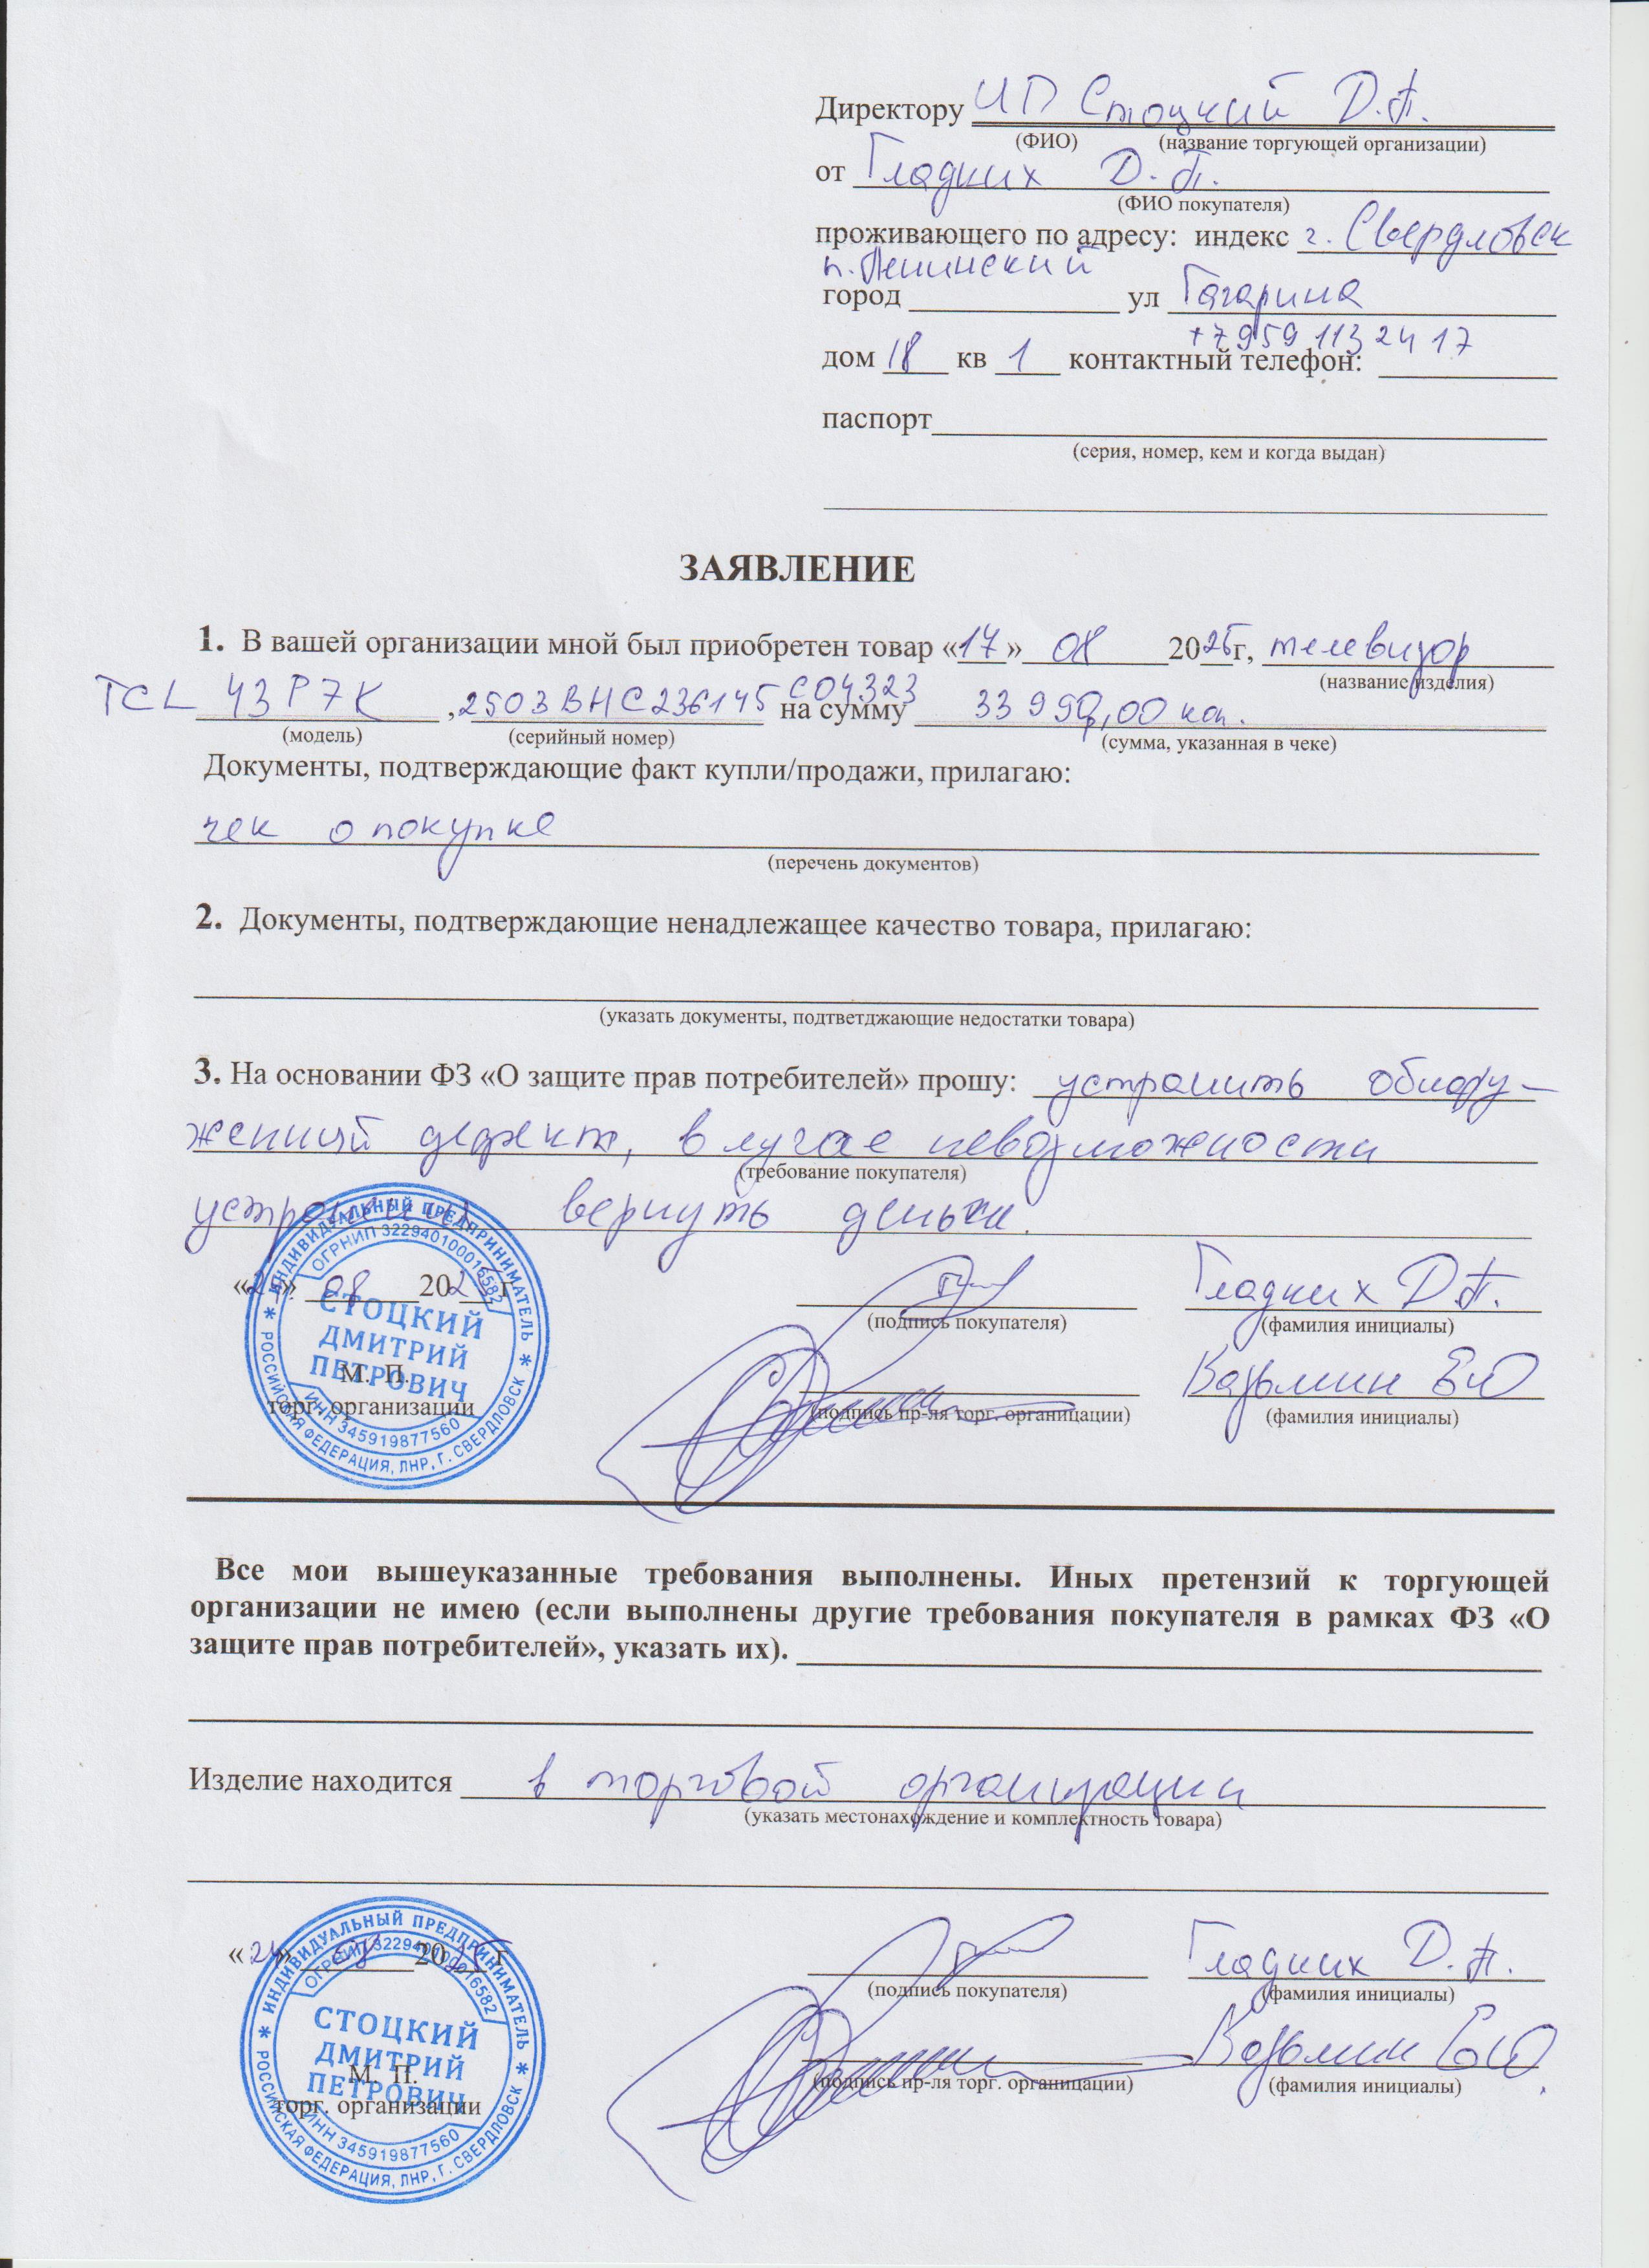 Директору ИП Стоцкий Д.П.
(ФИО) (название торгующей организации)
от Гладких Д.П.
(ФИО покупателя)
проживающего по адресу: индекс г. Свердловск
п. Ленинский
город ____________ ул Гагарина
+7 959 113 24 17
дом 18 кв 1 контактный телефон: ____________
паспорт____________
(серия, номер, кем и когда выдан)
ЗАЯВЛЕНИЕ
1. В вашей организации мной был приобретен товар «17» 08 2025г, телевизор
(название изделия)
C04323
TCL 43P7K , 2503BHC236145 на сумму 33 990,00 коп.
(модель) (серийный номер) (сумма, указанная в чеке)
Документы, подтверждающие факт купли/продажи, прилагаю:
чек о покупке
(перечень документов)
2. Документы, подтверждающие ненадлежащее качество товара, прилагаю:
(указать документы, подтветджающие недостатки товара)
3. На основании ФЗ «О защите прав потребителей» прошу: устранить обнару-
женный дефект, в лучае невозможности
(требование покупателя)
устранения вернуть деньги.
ИНДИВИДУАЛЬНЫЙ ПРЕДПРИНИМАТЕЛЬ
ОГРНИП 322940100016582
« » 08 2025 г
Гладких Д.П.
(подпись покупателя) (фамилия инициалы)
СТОЦКИЙ
ДМИТРИЙ
ПЕТРОВИЧ
М. П.
торг. организации
ИНН 345919877560
РОССИЙСКАЯ ФЕДЕРАЦИЯ, ЛНР, Г. СВЕРДЛОВСК
(подпись пр-ля торг. органицации) (фамилия инициалы)
Все мои вышеуказанные требования выполнены. Иных претензий к торгующей
организации не имею (если выполнены другие требования покупателя в рамках ФЗ «О
защите прав потребителей», указать их).
Изделие находится в торговой организации
(указать местонахождение и комплектность товара)
ИНДИВИДУАЛЬНЫЙ ПРЕДПРИНИМАТЕЛЬ
ОГРНИП 322940100016582
«24» 2025 г
Гладких Д.П.
(подпись покупателя) (фамилия инициалы)
СТОЦКИЙ
ДМИТРИЙ
ПЕТРОВИЧ
М. П.
торг. организации
ИНН 345919877560
РОССИЙСКАЯ ФЕДЕРАЦИЯ, ЛНР, Г. СВЕРДЛОВСК
(подпись пр-ля торг. органицации) (фамилия инициалы)